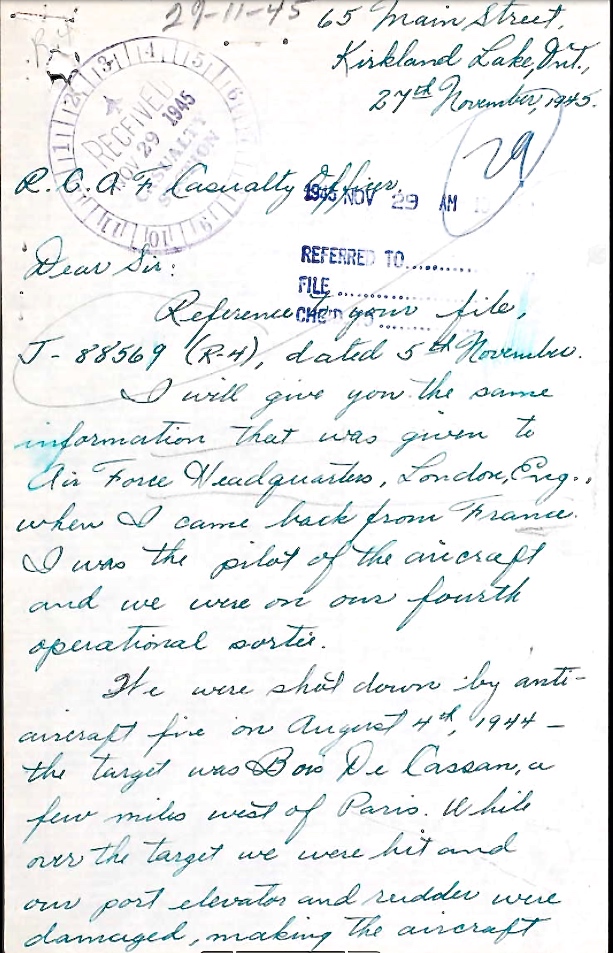 29-11-45
65 Main Street,
Kirkland Lake, Ont.,
27th November, 1945.
29
RECEIVED
NOV 29 1945
CASUALTY
R.C.A.F. Casualty Officer,
1945 NOV 29 AM
REFERRED TO
FILE
Dear Sir:
Reference to your file,
J-88569 (R-4), dated 5th November.
I will give you the same
information that was given to
Air Force Headquarters, London, Eng.,
when I came back from France.
I was the pilot of the aircraft
and we were on our fourth
operational sortie.
We were shot down by anti-
aircraft fire on August 4th, 1944 –
the target was Bois De Cassan, a
few miles west of Paris. While
over the target we were hit and
our port elevator and rudder were
damaged, making the aircraft